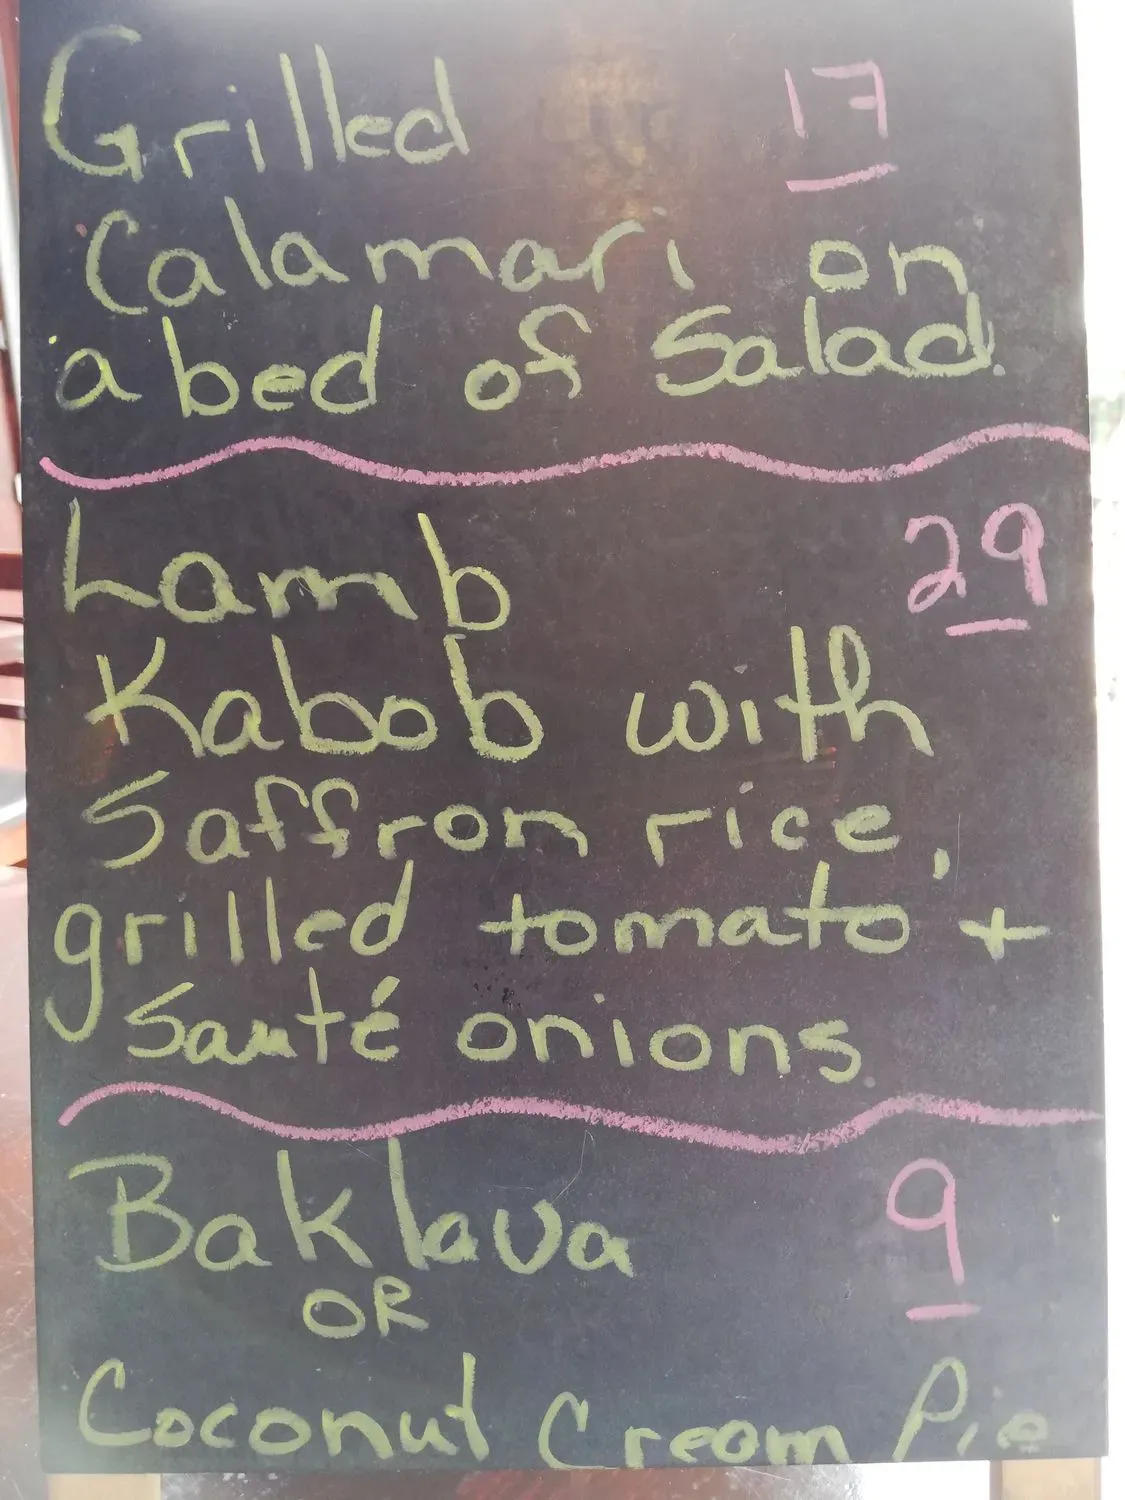 Grilled 17
Calamari on
a bed of Salad.
Lamb 29
Kabob with
Saffron rice,
grilled tomato +
Sauté onions.
Baklava 9
OR
Coconut Cream Pie